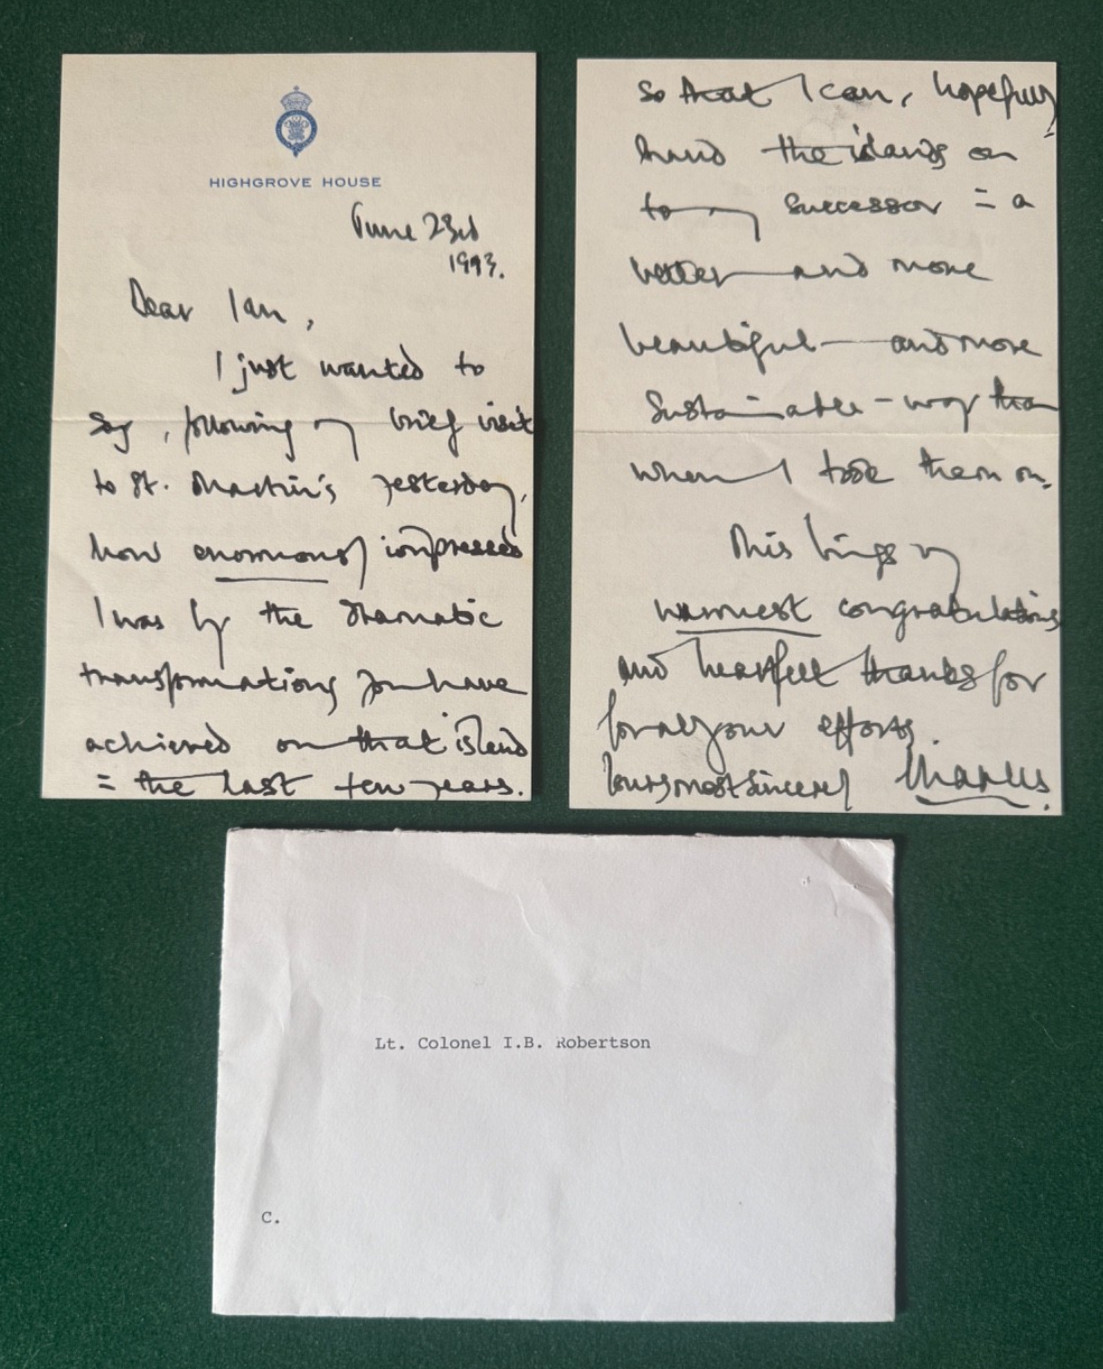 HIGHGROVE HOUSE
June 23rd
1993.
Dear Ian,
I just wanted to
say, following my brief visit
to St. Martin's yesterday,
how enormously impressed
I was by the dramatic
transformations you have
achieved on that island
in the last few years.
so that I can, hopefully,
hand the islands on
to my successor in a
better and more
beautiful - and more
sustainable - way than
when I took them on.
This brings my
warmest congratulations
and heartfelt thanks for
for all your efforts.
Yours most sincerely Charles.
Lt. Colonel I.B. Robertson
C.